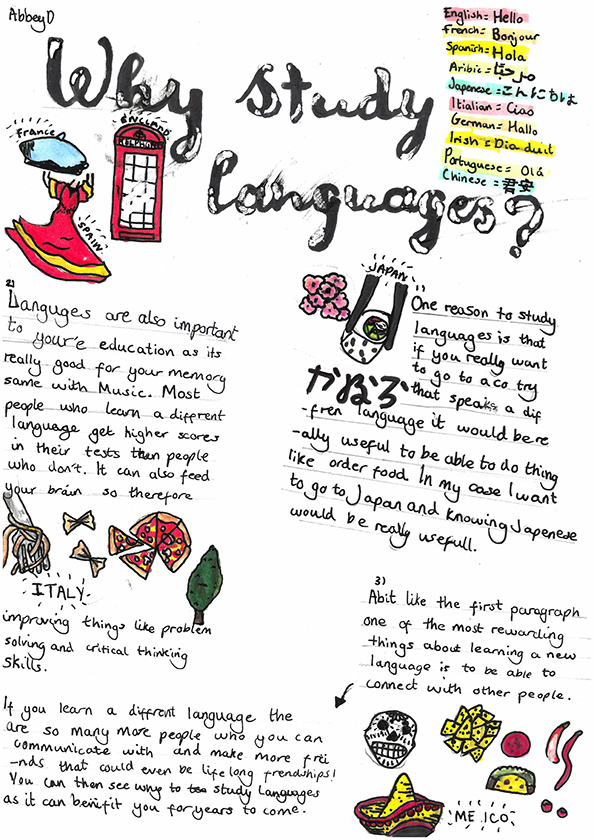 AbbeyD
English = Hello
French = Bonjour
Spanish = Hola
Aribic = مرحبا
Japenese = こんにちは
Itialian = Ciao
German = Hallo
Irish = Dia duit
Portuguese = Olá
Chinese = 君安
Why study
languages?
France
ENGLAND
SPAIN
JAPAN
1)
One reason to study
languages is that
if you really want
to go to a co try
that speaks a dif
-fren language it would be re
-ally useful to be able to do thing
like order food In my case I want
to go to Japan and knowing Japenese
would be really usefull.
2)
Languges are also important
to your'e education as its
really good for your memory
same with Music. Most
people who learn a different
language get higher scores
in their tests than people
who don't. It can also feed
your brain so therefore
ITALY
improving things like problem
solving and critical thinking
skills.
3)
Abit like the first paragraph
one of the most rewarding
things about learning a new
language is to be able to
connect with other people.
If you learn a diffrent language the
are so many more people who you can
communicate with and make more frei
-nds that could even be life long frendships!
You can then see why to study languages
as it can benifit you for years to come.
ME ICO